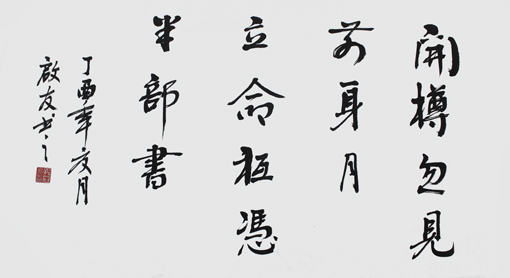 開樽忽見
前身月
立命祇憑
半部書
丁酉年夏月
啟友书之